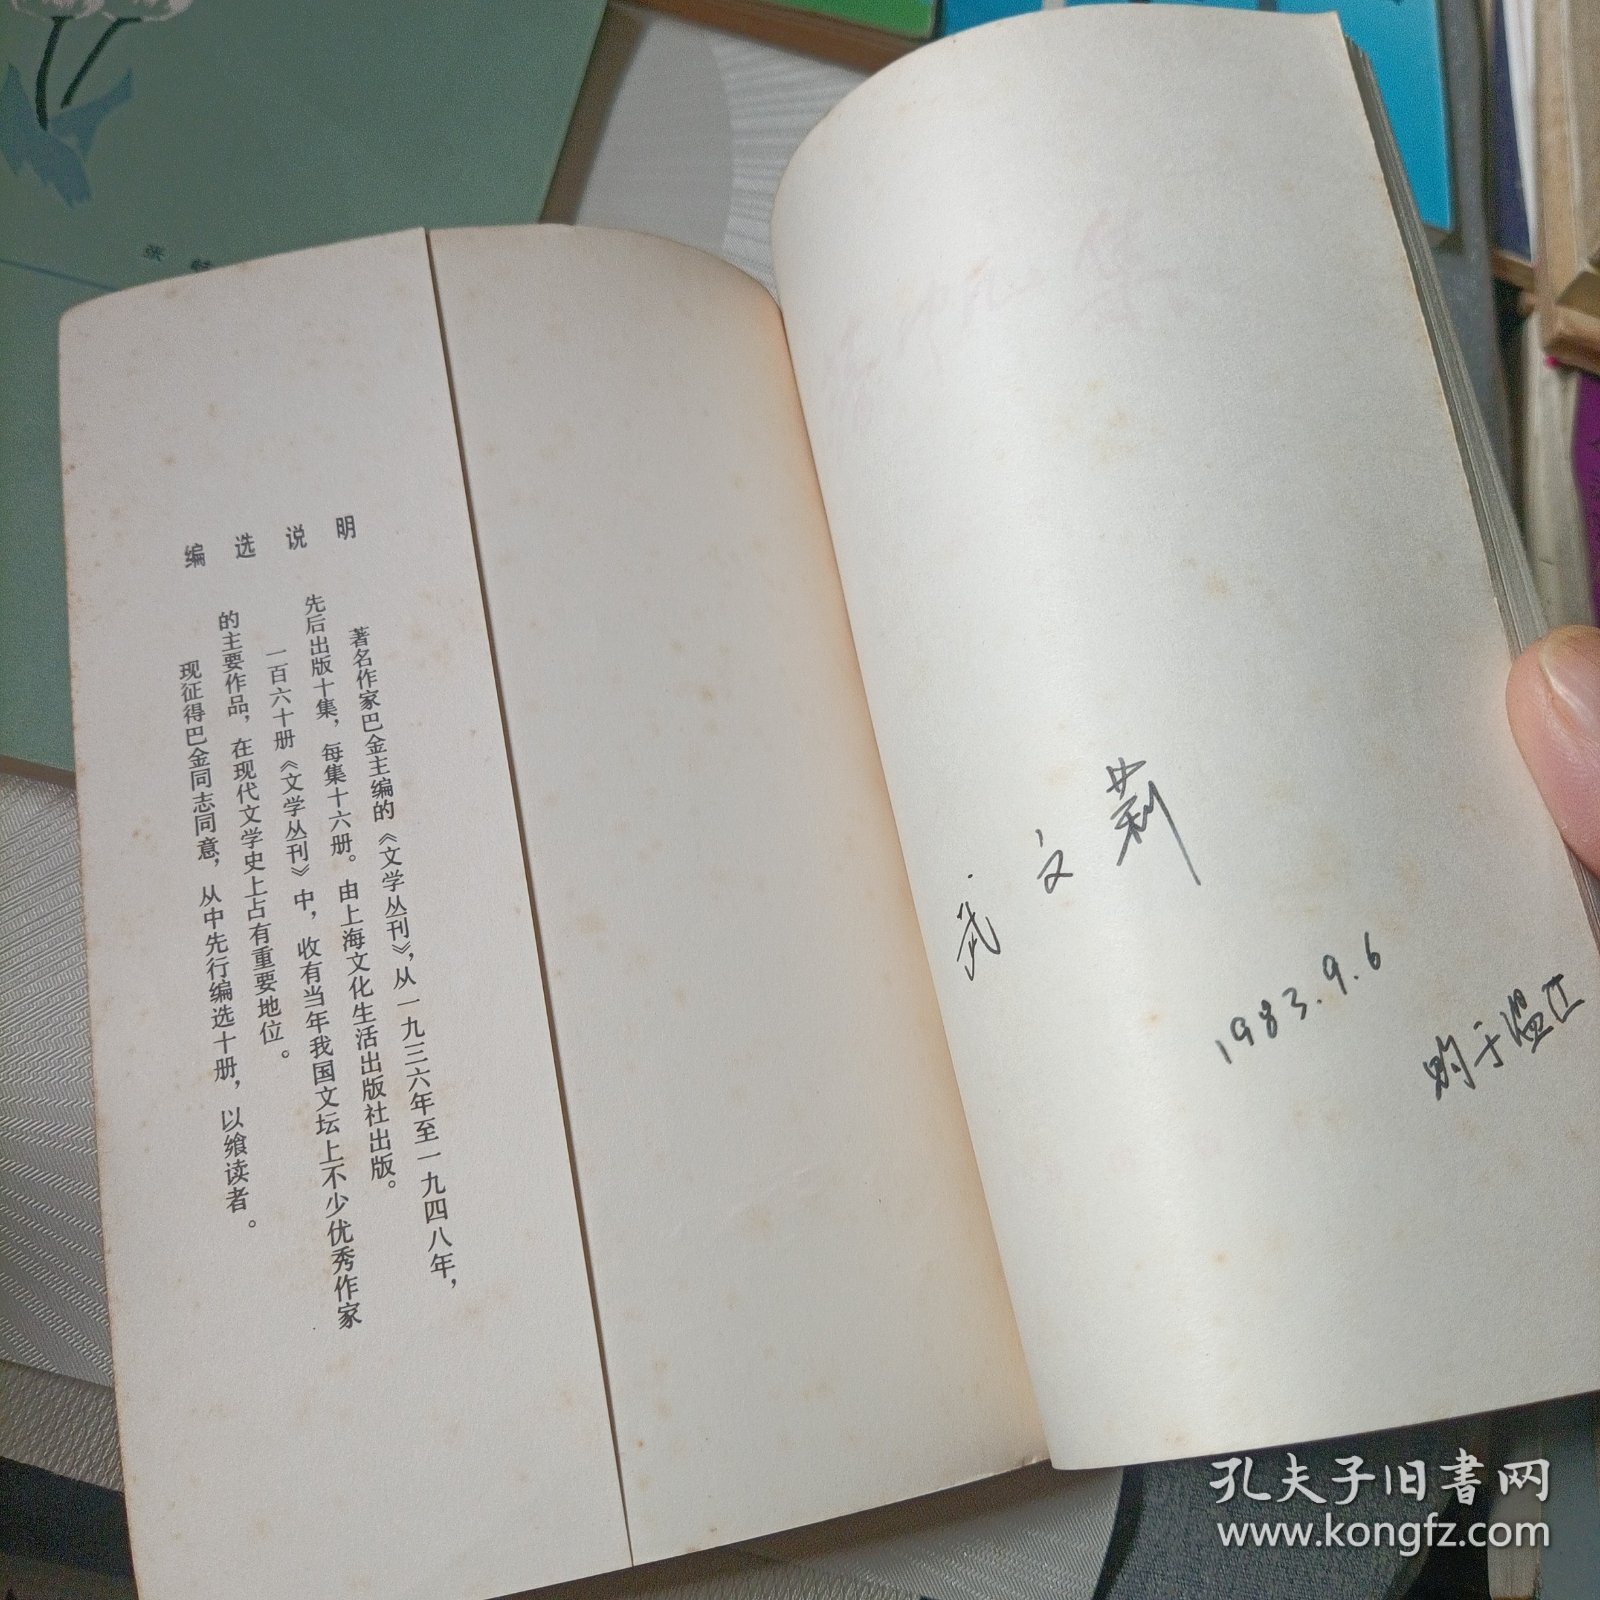 编选说明
著名作家巴金主编的《文学丛刊》，从一九三六年至一九四八年，
先后出版十集，每集十六册。由上海文化生活出版社出版。
一百六十册《文学丛刊》中，收有当年我国文坛上不少优秀作家
的主要作品，在现代文学史上占有重要地位。
现征得巴金同志同意，从中先行编选十册，以飨读者。
武文莉
1983.9.6
购于温江
张
集
孔夫子旧书网
www.kongfz.com